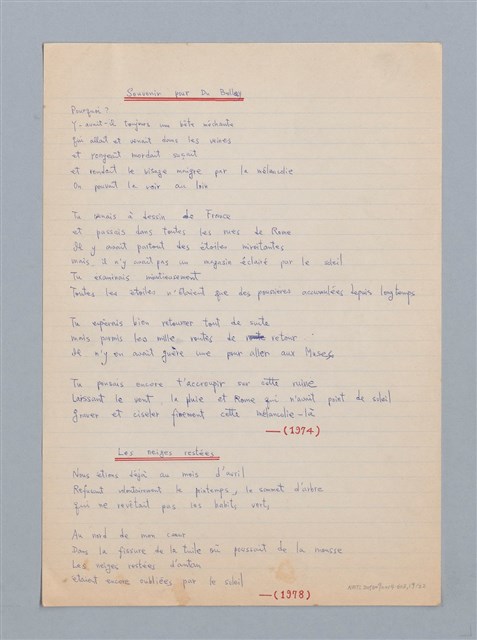 Souvenir pour Du Bellay
Pourquoi ?
Y-avait-il toujours une bête méchante
Qui allait et venait dans les veines
et rongeait mordait suçait
et rendait le visage maigre par la mélancolie
On pouvait la voir au loin
Tu venais à dessin de France
et passais dans toutes les rues de Rome
Il y avait partout des étoiles miroitantes
mais il n'y avait pas un magasin éclairé par le soleil
Tu examinais minutieusement
Toutes les étoiles n'étaient que des poussières accumulées depuis longtemps
Tu espérais bien retourner tout de suite
mais parmis les mille routes de retour
Il n'y en avait guère une pour aller aux Muses
Tu pensais encore t'accroupir sur cette ruine
Laissant le vent, la pluie et Rome qui n'avait point de soleil
Graver et ciseler finement cette mélancolie-là
—(1974)
Les neiges restées
Nous étions déjà au mois d'avril
Refusant le pintemps, le sommet d'arbre
qui ne revêtait pas les habits verts
Au nord de mon cœur
Dans la fissure de la tuile où poussait de la mousse
Les neiges restées d'antan
étaient encore oubliées par le soleil
—(1978)